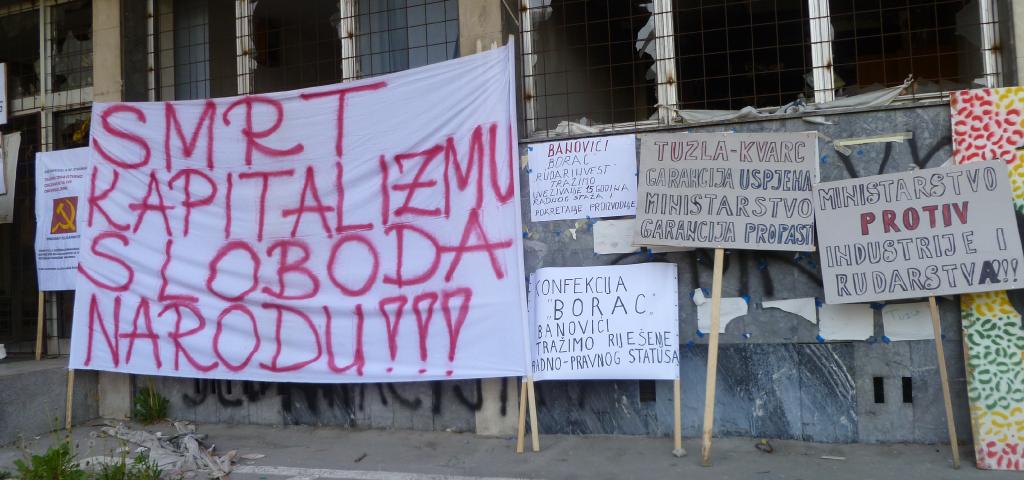 SMRT
KAPITALIZMU
SLOBODA
NARODU!!!
BANOVIĆI
BORAC
RUDARINVEST
TRAŽIMO
UVEZIVANJE 15 GODINA
RADNOG STAŽA!
POKRETANJE PROIZVODNJE
KONFEKCIJA
"BORAC"
BANOVIĆI
TRAŽIMO RIJEŠENJE
RADNO-PRAVNOG STATUSA
TUZLA-KVARC
GARANCIJA USPJEHA
MINISTARSTVO
GARANCIJA PROPASTI
MINISTARSTVO
PROTIV
INDUSTRIJE I
RUDARSTVA!!!